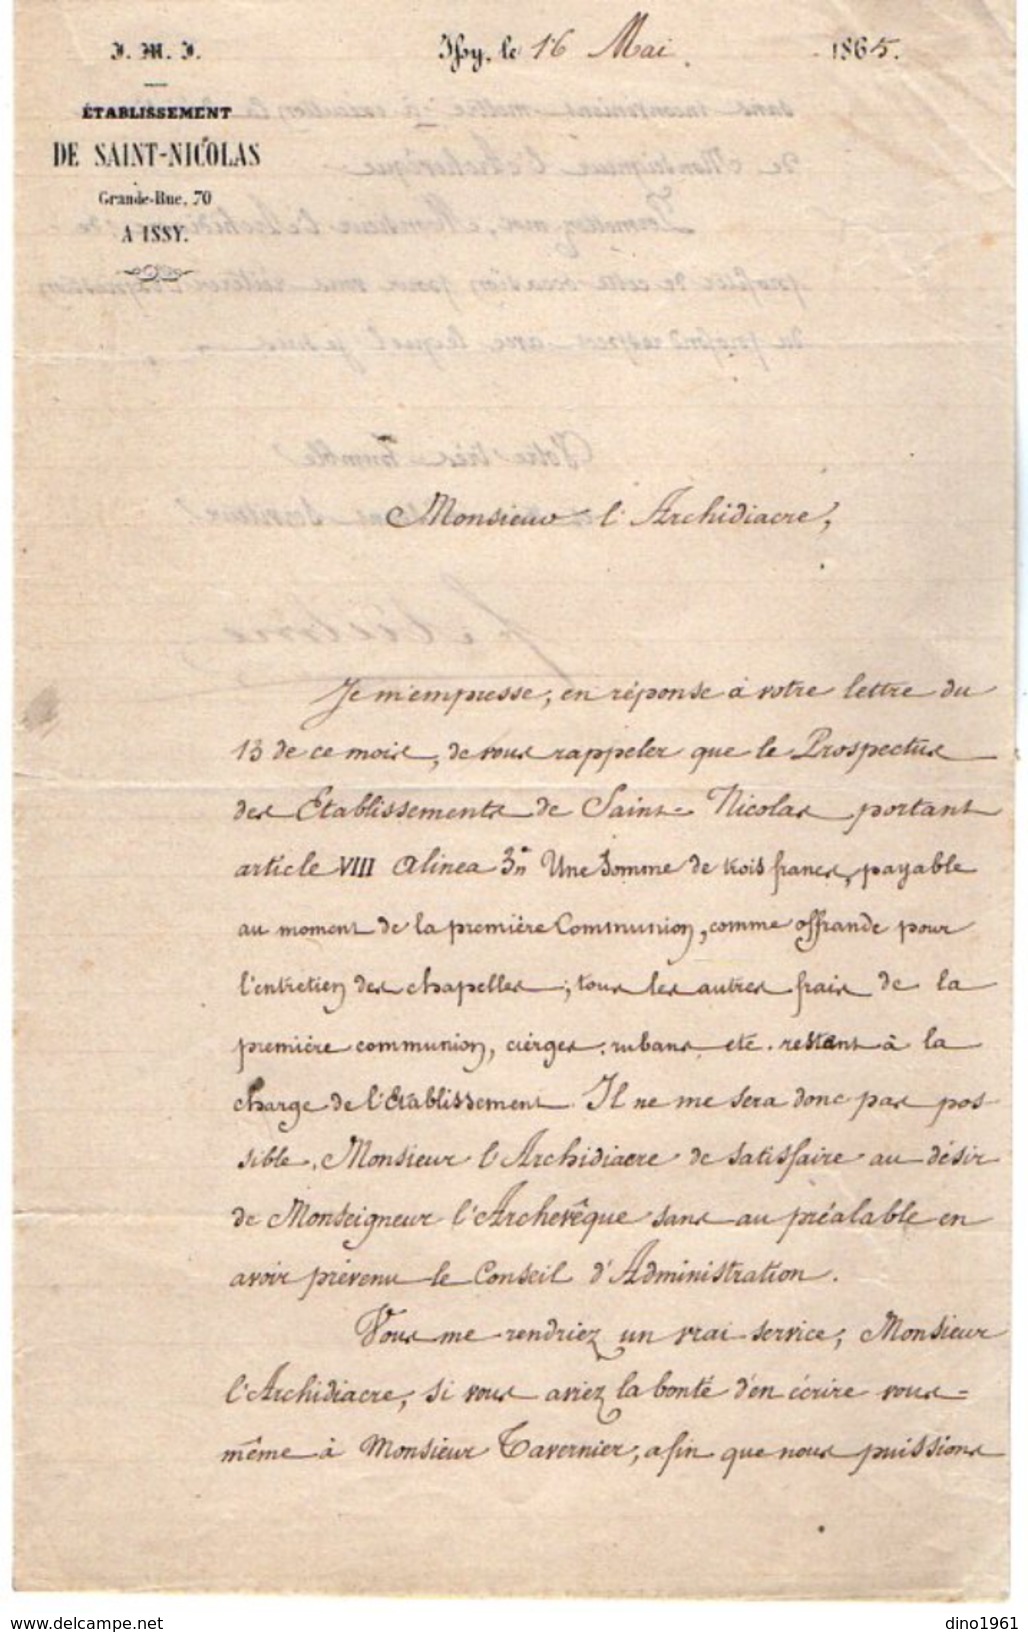 J. M. J.
Issy, le 16 Mai 1865.
ÉTABLISSEMENT
DE SAINT-NICOLAS
Grande-Rue, 70
A ISSY.
Monsieur l'Archidiacre,
Je m'empresse, en réponse à votre lettre du
13 de ce mois, de vous rappeler que le Prospectus
des Etablissements de Saint-Nicolas portant
article VIII alinea 3° Une Somme de trois francs, payable
au moment de la première Communion, comme offrande pour
l'entretien des chapelles; tous les autres frais de la
première communion, cierges, rubans etc. restent à la
charge de l'Etablissement. Il ne me sera donc pas pos
sible, Monsieur l'Archidiacre de satisfaire au désir
de Monseigneur l'Archevêque sans au préalable en
avoir prévenu le Conseil d'Administration.
Vous me rendriez un vrai service, Monsieur
l'Archidiacre, si vous aviez la bonté d'en écrire vous-
même à Monsieur Tavernier, afin que nous puissions
www.delcampe.net
dino1961